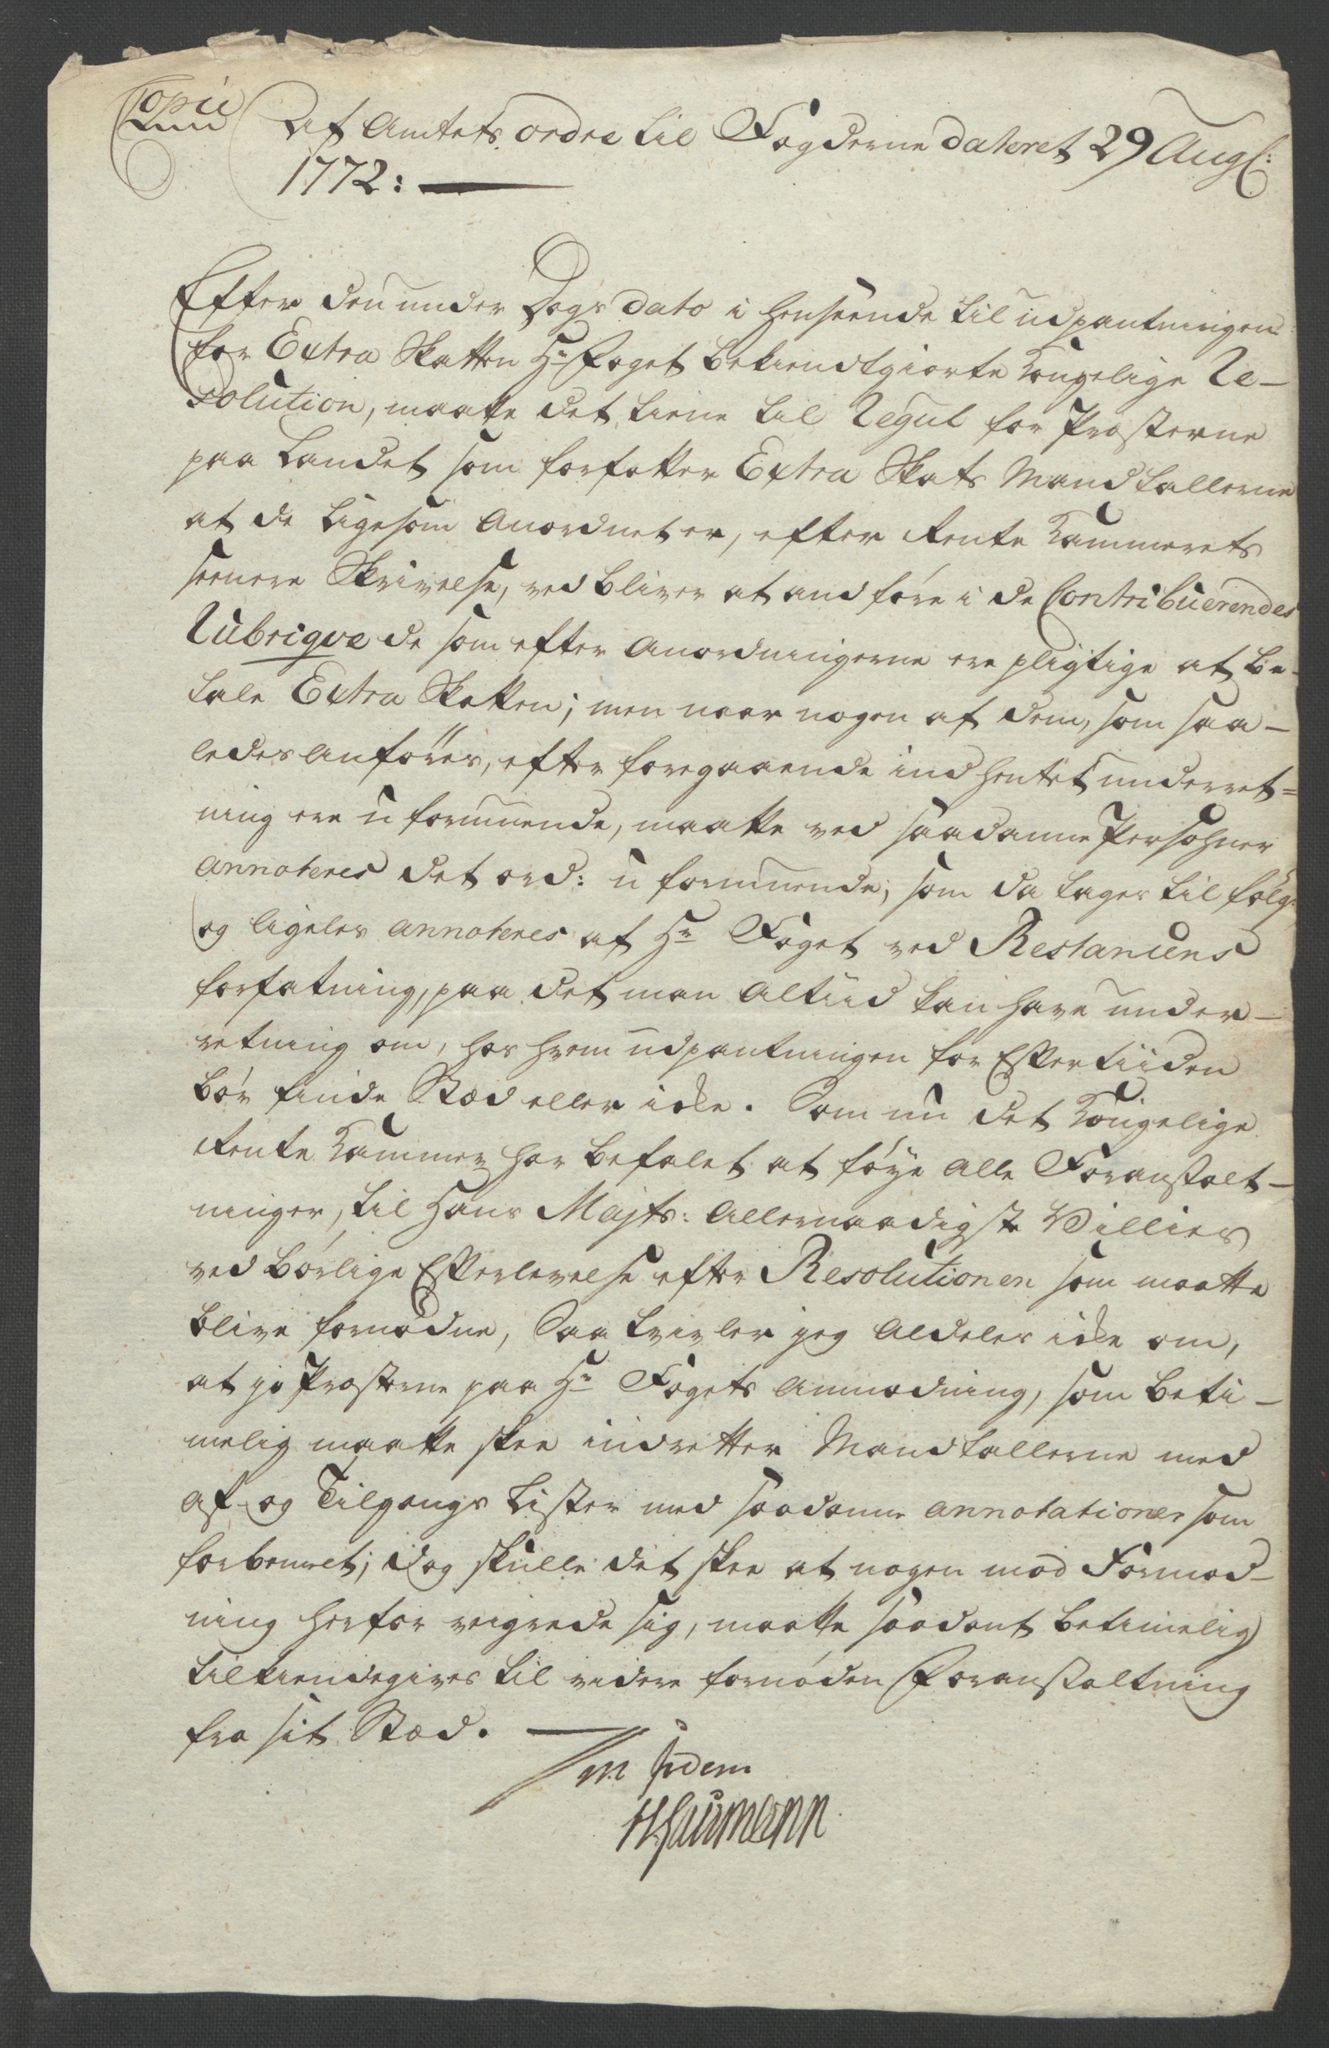 Copie
Af Amtets ordre til Fogderne dateret 29 Aug:
1772:
Efter den under Dags dato i henseende til udpantningen
for Extra Skatten Hr Foget bekiendtgiorte Kongelige Re-
solution, maatte det tiene til Regul for Præsterne
paa Landet som forfatter Extra Skats Mandtallerne
at de ligesom Anordnet er, efter Rente Kammerets
seenere Skrivelse, vedbliver at andføre i de Contribuerendes
Rubriqve de som efter Anordningerne ere pligtige at be-
tale Extra Skatten; men naar nogen af dem, som saa-
ledes Anføres, efter foregaaende indhentet underret-
ning ere uformuende, maatte ved saadanne Persohner
annoteres det ord: uformuende, som da tages til følge
og ligeles annoteres af Hr Foget ved Restancens
forfatning, paa det man Altiid kan have under-
retning om, hos hvem udpantningen for Eftertiiden
bør finde Stæd eller icke. Som nu det Kongelige
Rente Kammer har befalet at føye Alle Foranstalt-
ninger, til Hans Majts: Allernaadigste Villies
ved børlige Efterlevelse efter Resolutionen som maatte
blive fornødne, Saa tvivler jeg Aldeles icke om,
at jo Præsterne paa Hr Fogets Anmodning, som beti-
melig maatte skee indretter Mandtallerne med
Af- og Tilgangs Lister med saadanne annotationer som
forbemelt; dog skulle det skee at nogen mod Formod-
ning herfor veigrede sig, maatte saadant betimelig
tilkiendegives til videre fornøden Foranstaltning
fra sit Stæd.
In fidem